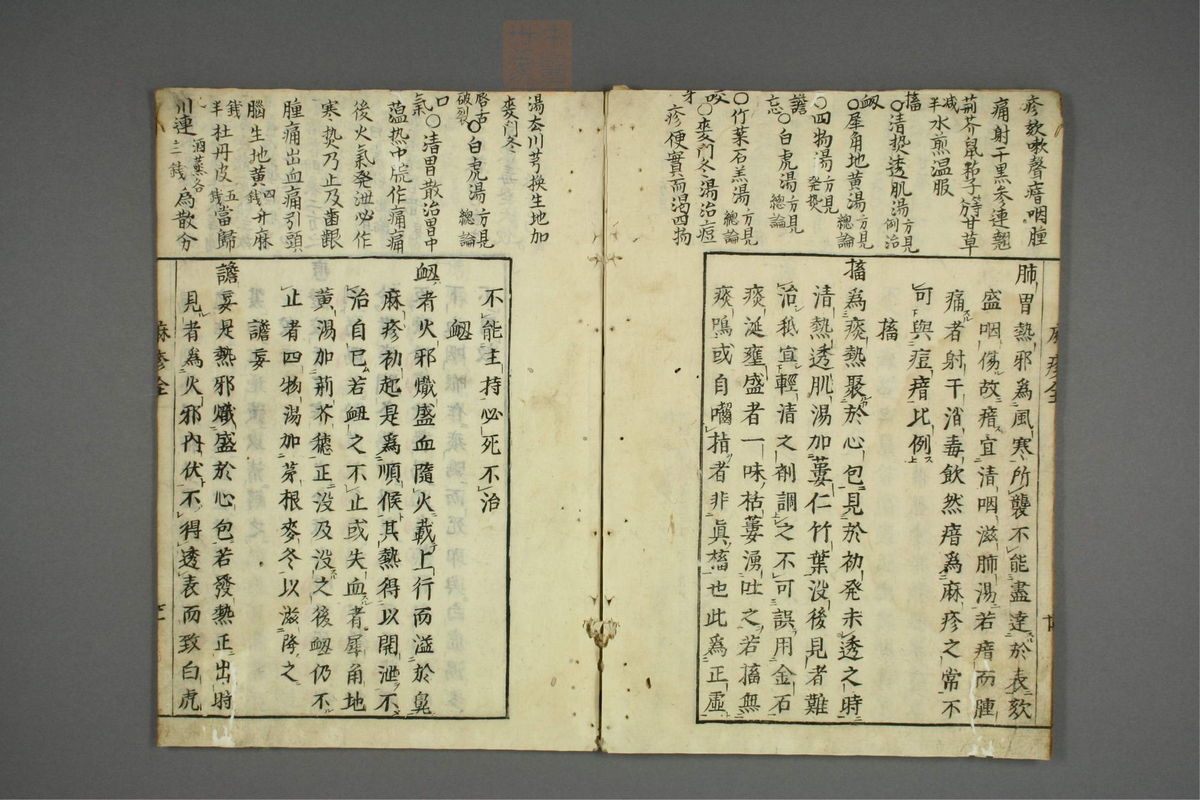 疹欬嗽聲瘖咽腫
痛射干黒参連翹
荊芥鼠粘子分等甘草
减半水煎温服
搐
○清熱透肌湯方見例治
衂
○犀角地黄湯方見總論
○四物湯方見發熱
譫忘
○白虎湯方見總論
○竹葉石羔湯方見總論
○麥門冬湯治痘
疹便實而渇四物
湯去川芎換生地加
麥門冬
唇舌破裂
○白虎湯方見總論
口氣
○清胃散治胃中
薀热中脘作痛痛
後火氣発泄必作
寒热乃止及齒齦
腫痛出血痛引頭
腦生地黄四錢升麻
錢半牡丹皮五錢當歸
川連酒蒸各三錢為散分
肺胃熱邪為風寒所襲不能盡達於表欬
盛咽傷故瘖宜清咽滋肺湯若瘖而腫
痛者射干消毒飲然瘖為麻疹之常不
可與痘瘖比例
搐
搐為痰熱聚於心包見於初発未透之時
清熱透肌湯加蔞仁竹葉没後見者難
治秪宜輕清之剤調之不可誤用金石
痰涎壅盛者一味枯蔞湧吐之若搐無
痰鳴或自囓指者非眞搐也此為正虚
不能主持必死不治
衂
衂者火邪熾盛血隨火載上行而溢於鼻
麻疹初起是為順候其熱得以開泄不
治自已若衂之不止或失血者犀角地
黄湯加荊芥穂正没及没之後衂仍不
止者四物湯加茅根麥冬以滋降之
譫妄
譫妄是熱邪熾盛於心包若發熱正出時
見者為火邪内伏不得透表而致白虎